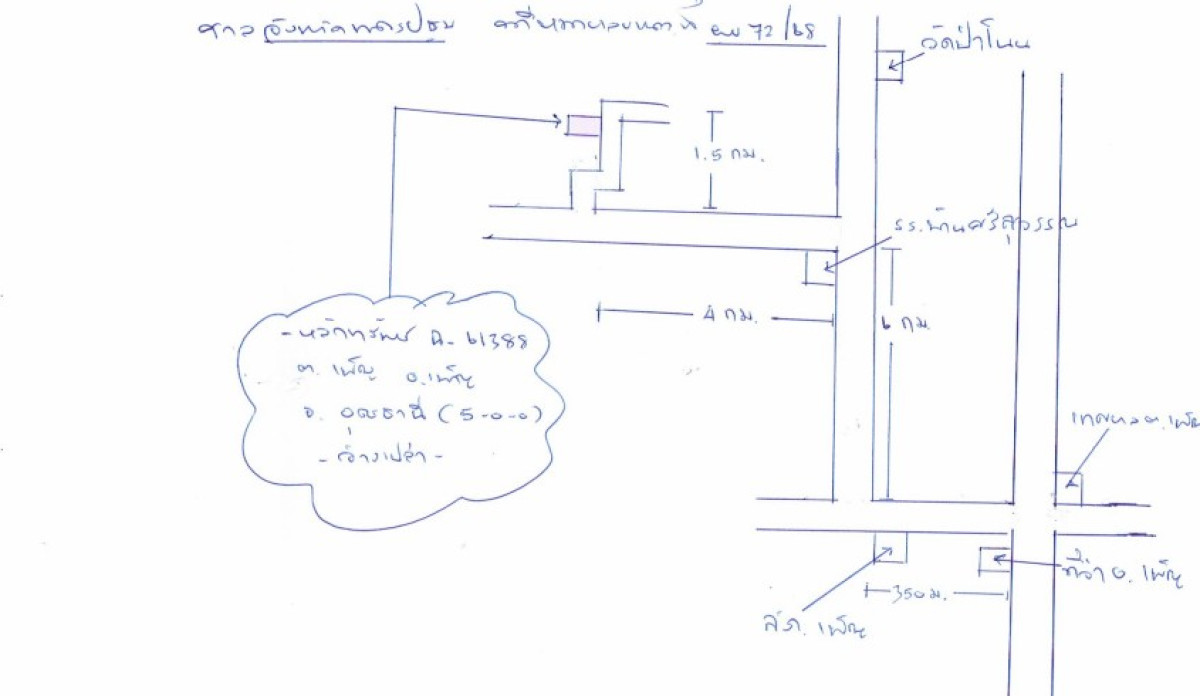 ศาล จังหวัดนครปฐม คดีหมายเลขแดงที่ ผบ 72/68
วัดป่าโนน
1.5 กม.
รร.บ้านศรีสุวรรณ
4 กม.
6 กม.
- หลักทรัพย์ ฉ. 61388
ต. เพ็ญ อ.เพ็ญ
จ. อุดรธานี (5-0-0)
- ว่างเปล่า -
เทศบาล ต.เพ็ญ
ที่ว่า อ. เพ็ญ
350 ม.
สภ. เพ็ญ